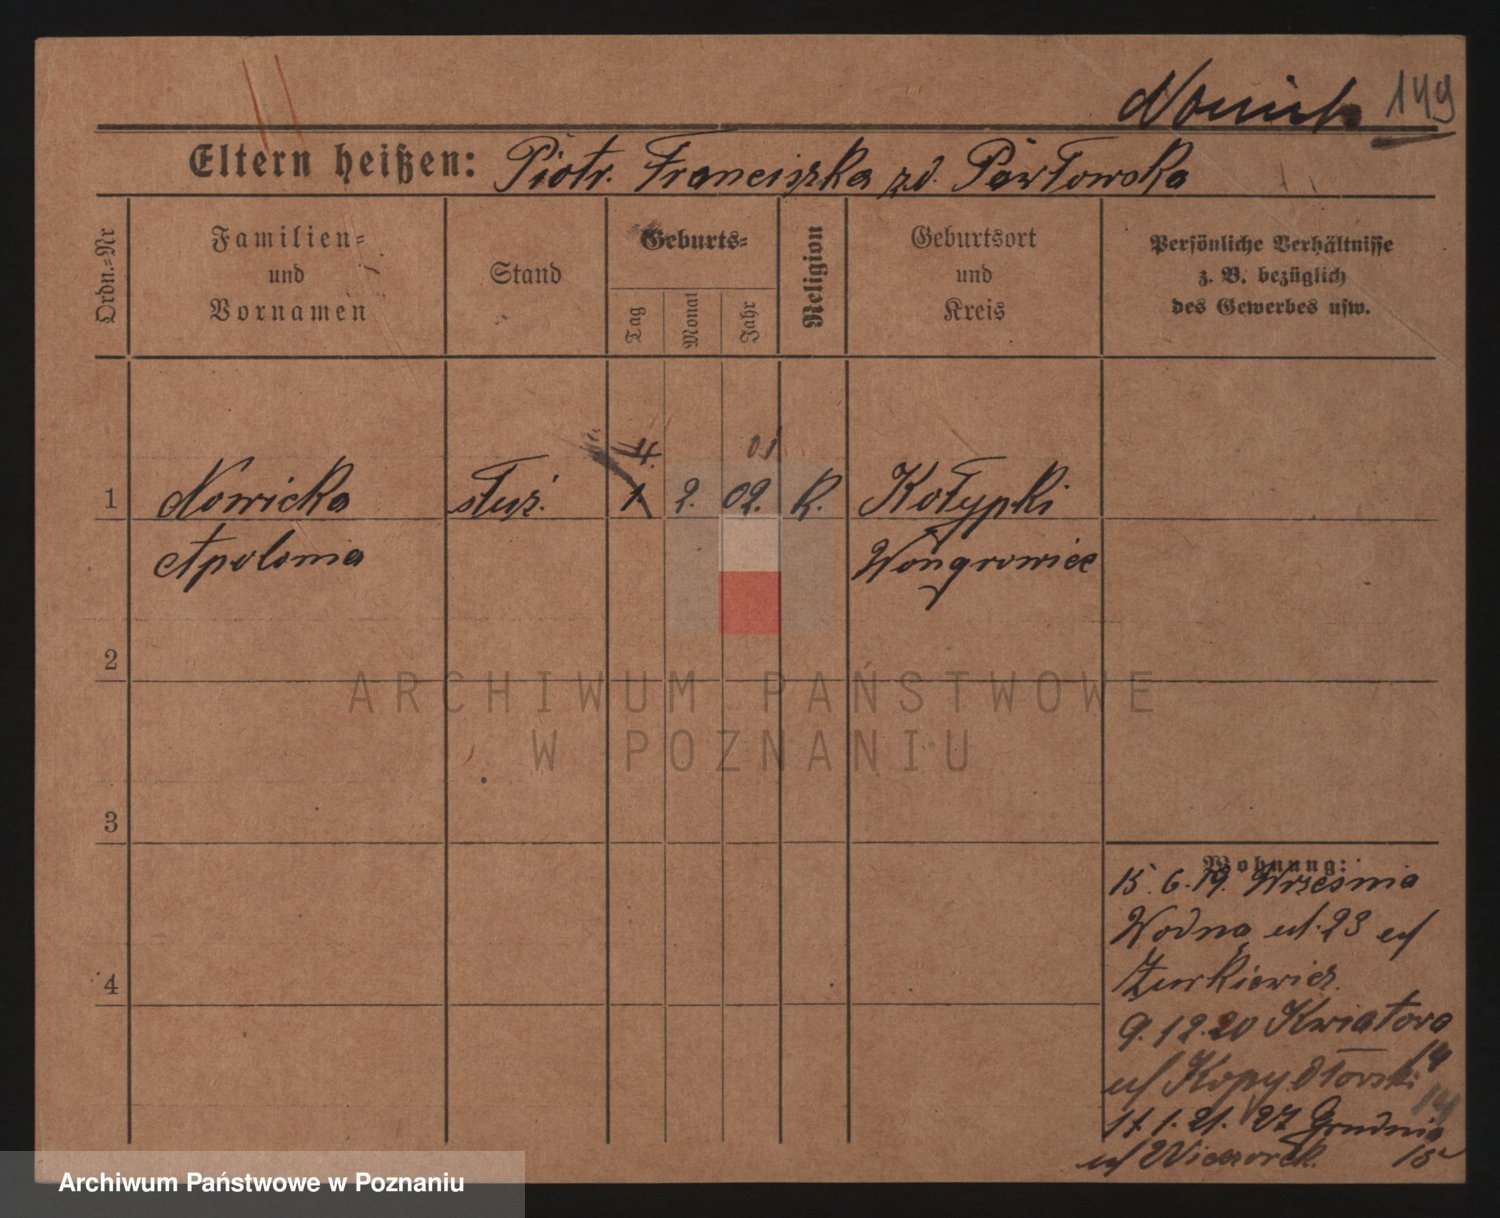 149
Eltern heißen: Piotr. Franciszka zd. Pawłowska
Ordn.=Nr
Familien=
und
Vornamen
Stand
Geburts=
Tag
Monat
Jahr
Religion
Geburtsort
und
Kreis
Persönliche Verhältnisse
z. B. bezüglich
des Gewerbes usw.
4. 01
1 Nowicka służ. 1. 2. 02. K. Kołypki
Apolonia Wongrowiec
2
3
4
Wohnung:
15.6.19. Września
Wodna ul. 23
Żurkiewicz.
9.12.20 Kwiatowa
14
Kopydłowski
14
17.1.21. 27 Grudnia
Wieczorek. 15
ARCHIWUM PAŃSTWOWE
W POZNANIU
Archiwum Państwowe w Poznaniu